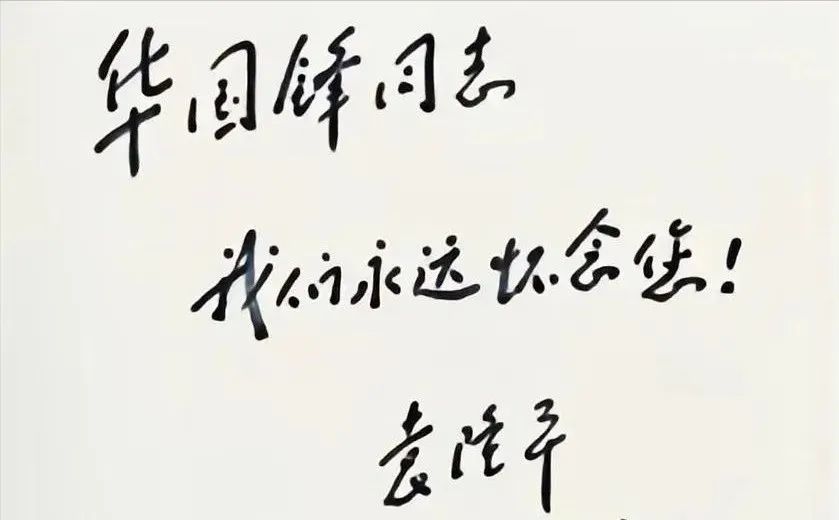 华国锋同志
我们永远怀念您!
袁隆平